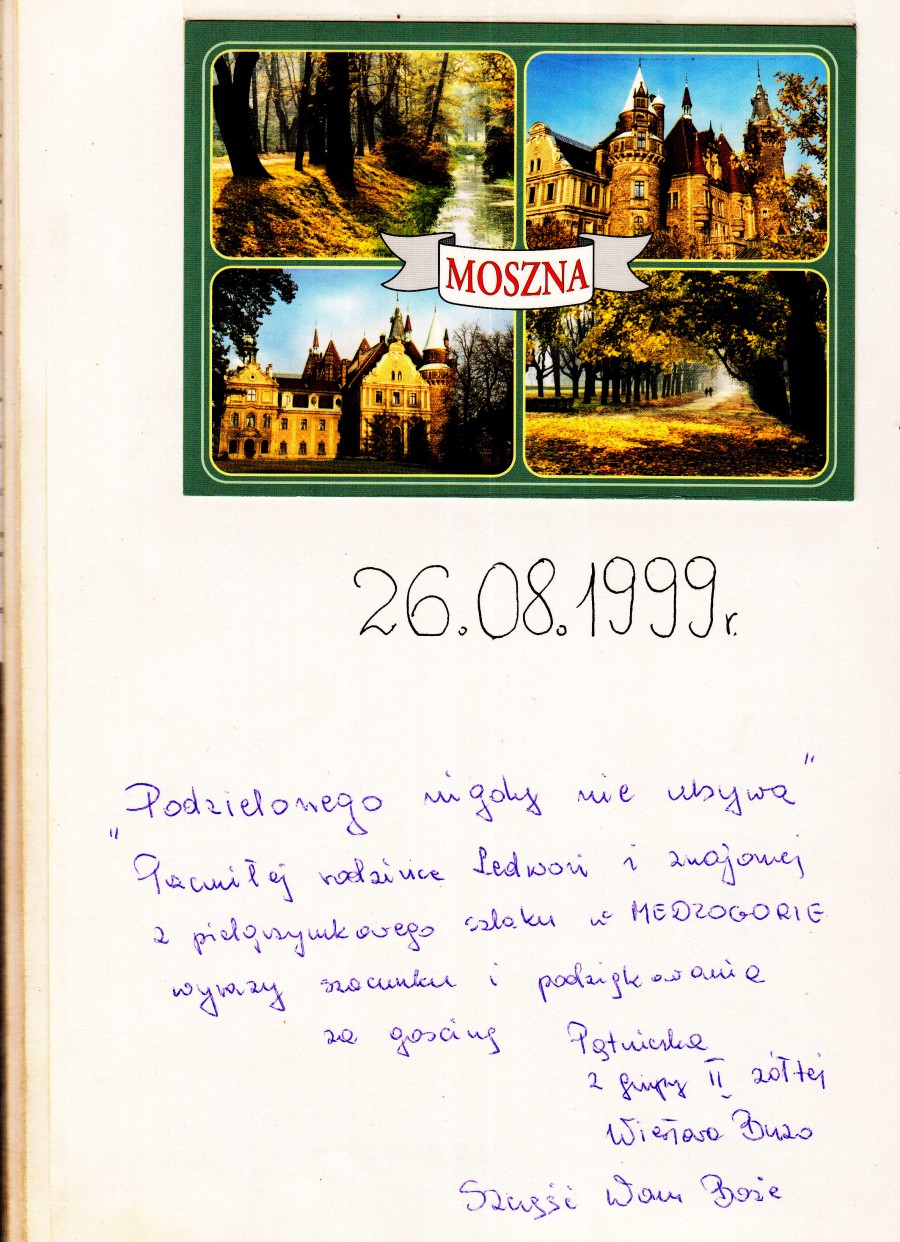 MOSZNA
26.08.1999r.
"Podzielonego nigdy nie ubywa"
Przemiłej rodzince Ledwoń i znajomej
z pielgrzymkowego szlaku w MEDZOGORIE
wyrazy szacunku i podziękowania
za gościnę Pątniczka
z grupy II żółtej
Wiesława Buzo
Szczęść Wam Boże